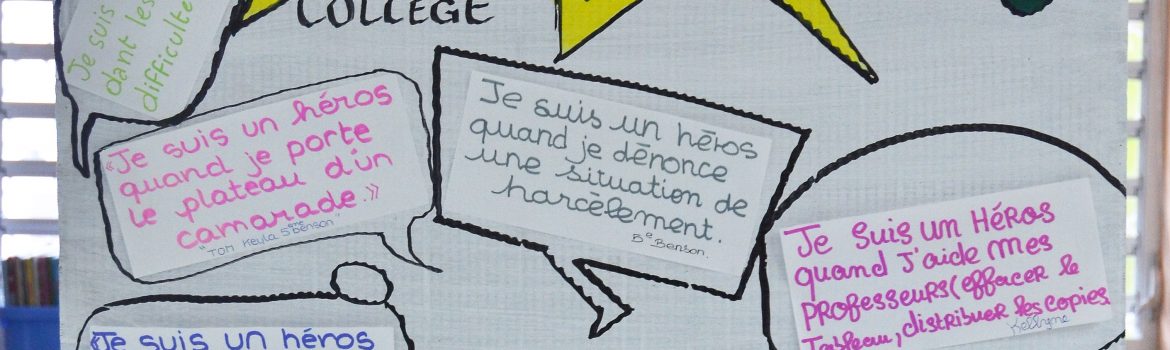 COLLÈGE
Je suis
dant les
difficulté
«Je suis un héros
quand je porte
le plateau d'un
camarade.»
"TOM Keyla 5ème Benson"
Je suis un héros
quand je dénonce
une situation de
harcèlement.
Be Benson.
Je suis un Héros
quand J'aide mes
PROFESSEURS(effacer le
Tableau, distribuer les copies
Kellyne
«Je suis un héros